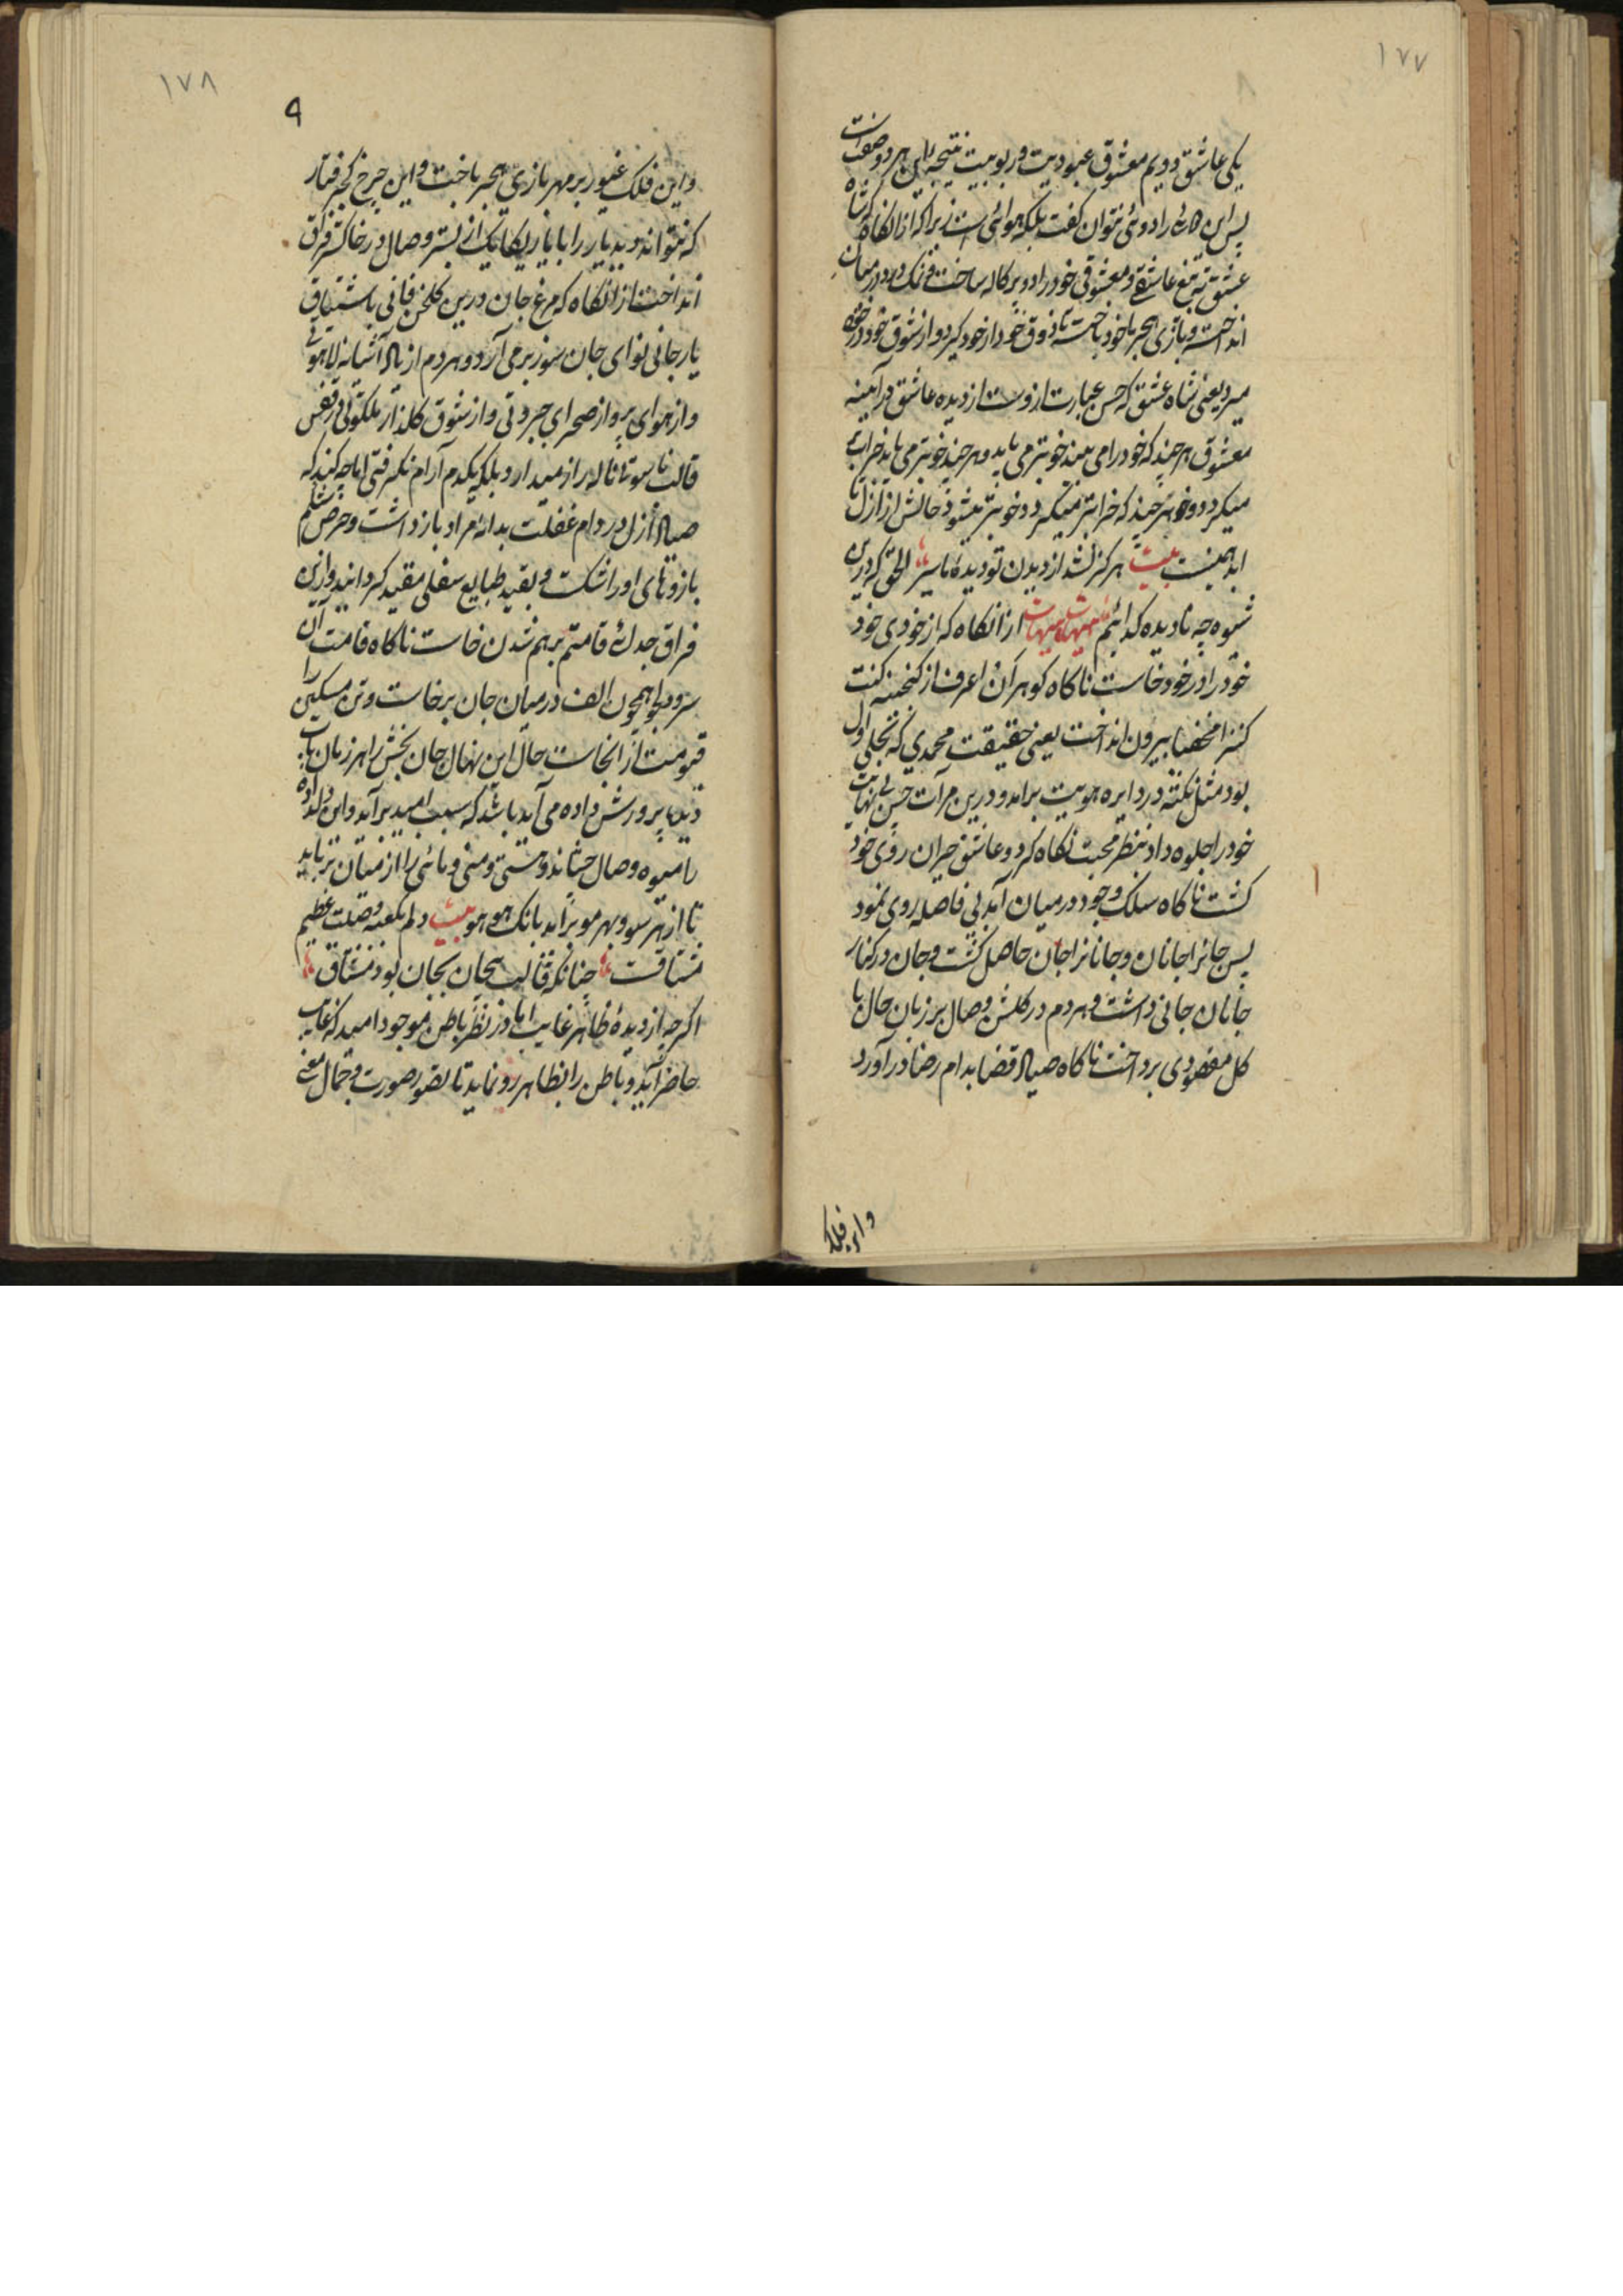 ۱۷۷
یکی عاشق و دویم معشوق عبودیت و ربوبیت نتیجه این هر دو صفت است
پس این را دوئی نتوان گفت بلکه هوائی است زیرا که از انکاه که شاه
عشق به تیغ عاشقی و معشوقی خود را دو پرکاله ساخت و نمک درد در میان
انداخته و بازی هجر باخود باخته تا ذوق خود از خود کیرد و از شوق خود در خود
میرد یعنی شاه عشق که حسن عبارت ازوست از دیده عاشق در آیینه
معشوق هر چند که خود را می بیند خوبتر می یابد و هر چند خوبتر می یابد خرابتر
میکردد و هر چند که خرابتر میکردد خوبتر میشود حالش از ازل تا
ابد همینست بیت هرکز نشد از دیدن تو دیده ما سیر الحق که درین
شیوه چه نادیده کدائیم هیهات هیهات از انکاه که از خودی خود
خود را در خود خاست ناکاه کوهر آن اعرف از کنجینه کنت
کنزا مخفیا بیرون انداخت یعنی حقیقت محمدی که تجلی اول
بود مثل نکته در دایره هویت برامد و درین مرآت حسن بی نهایت
خود را جلوه داد بنظر محبت نکاه کرد و عاشق حیران روی خود
کشت ناکاه سلک وجود در میان آمد بی فاصله روی نمود
پس جانرا جانان و جانانرا جان حاصل کشت و جان در کنار
جانان جانی داشت و هر دم در کلشن وصال بر زبان حال با
کل مقصودی پرداخت ناکاه صیاد قضا بدام رضا در آورد
واین فلک
۱۷۸
۹
واین فلک غیور بر مهر بازی هجر باخت و این چرخ کجرفتار
که نتواند دید یار را با یار یکایک از بستر وصال در خاکستر فراق
انداخت از انکاه که مرغ جان درین کلخن فانی باشتیاق
یار جانی نوای جان سوز بر می آرد و هر دم از یاد آشیانه لاهوتی
و از هوای پرواز صحرای جبروتی و از شوق کلذار ملکوتی در قفس
قالب ناسوتی ناله زار میدارد بلکه یکدم آرام نکرفتی اما چه کند که
صیاد ازل در دام غفلت بدانه مراد بازداشت و حرص شکم
بازوهای اورا شکست و بقید طبایع سفلی مقید کردانید و ازین
فراق جدائی قامتم برهم شدن خاست ناکاه قامت آن
سرو دلجو همچون الف در میان جان برخاست و تن مسکین را
قیومت از انجاست حال این نهال جان بخش را هر زمان بآب
دیده پرورش داده می آید باشد که سبب امید برآید و این دلداده
را میوه وصال چشاند و هستی و منی و مائی را از میان برباید
تا از هر سو و بهر مو برآید بانک هو هو بیت دلم بکعبه وصلت عظیم
مشتاقست چنانکه قالب بیجان بجان بود مشتاق
اکرچه از دیده ظاهر غایب اما در نظر باطن موجود امید که غایب
حاضر آید و باطن را بظاهر رو نماید تا بضور صورت و جمال معنی